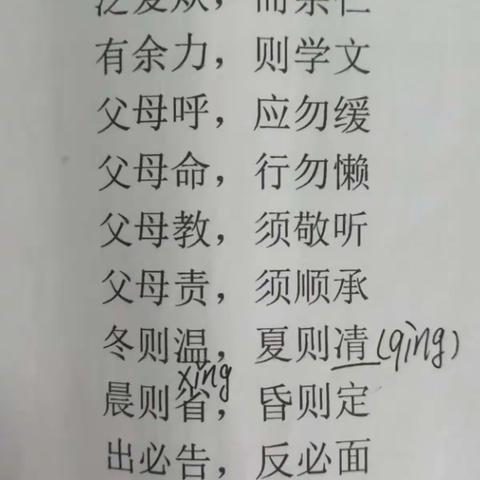 泛爱众，而亲仁
有余力，则学文
父母呼，应勿缓
父母命，行勿懒
父母教，须敬听
父母责，须顺承
冬则温，夏则清(qìng)
xǐng
晨则省，昏则定
出必告，反必面